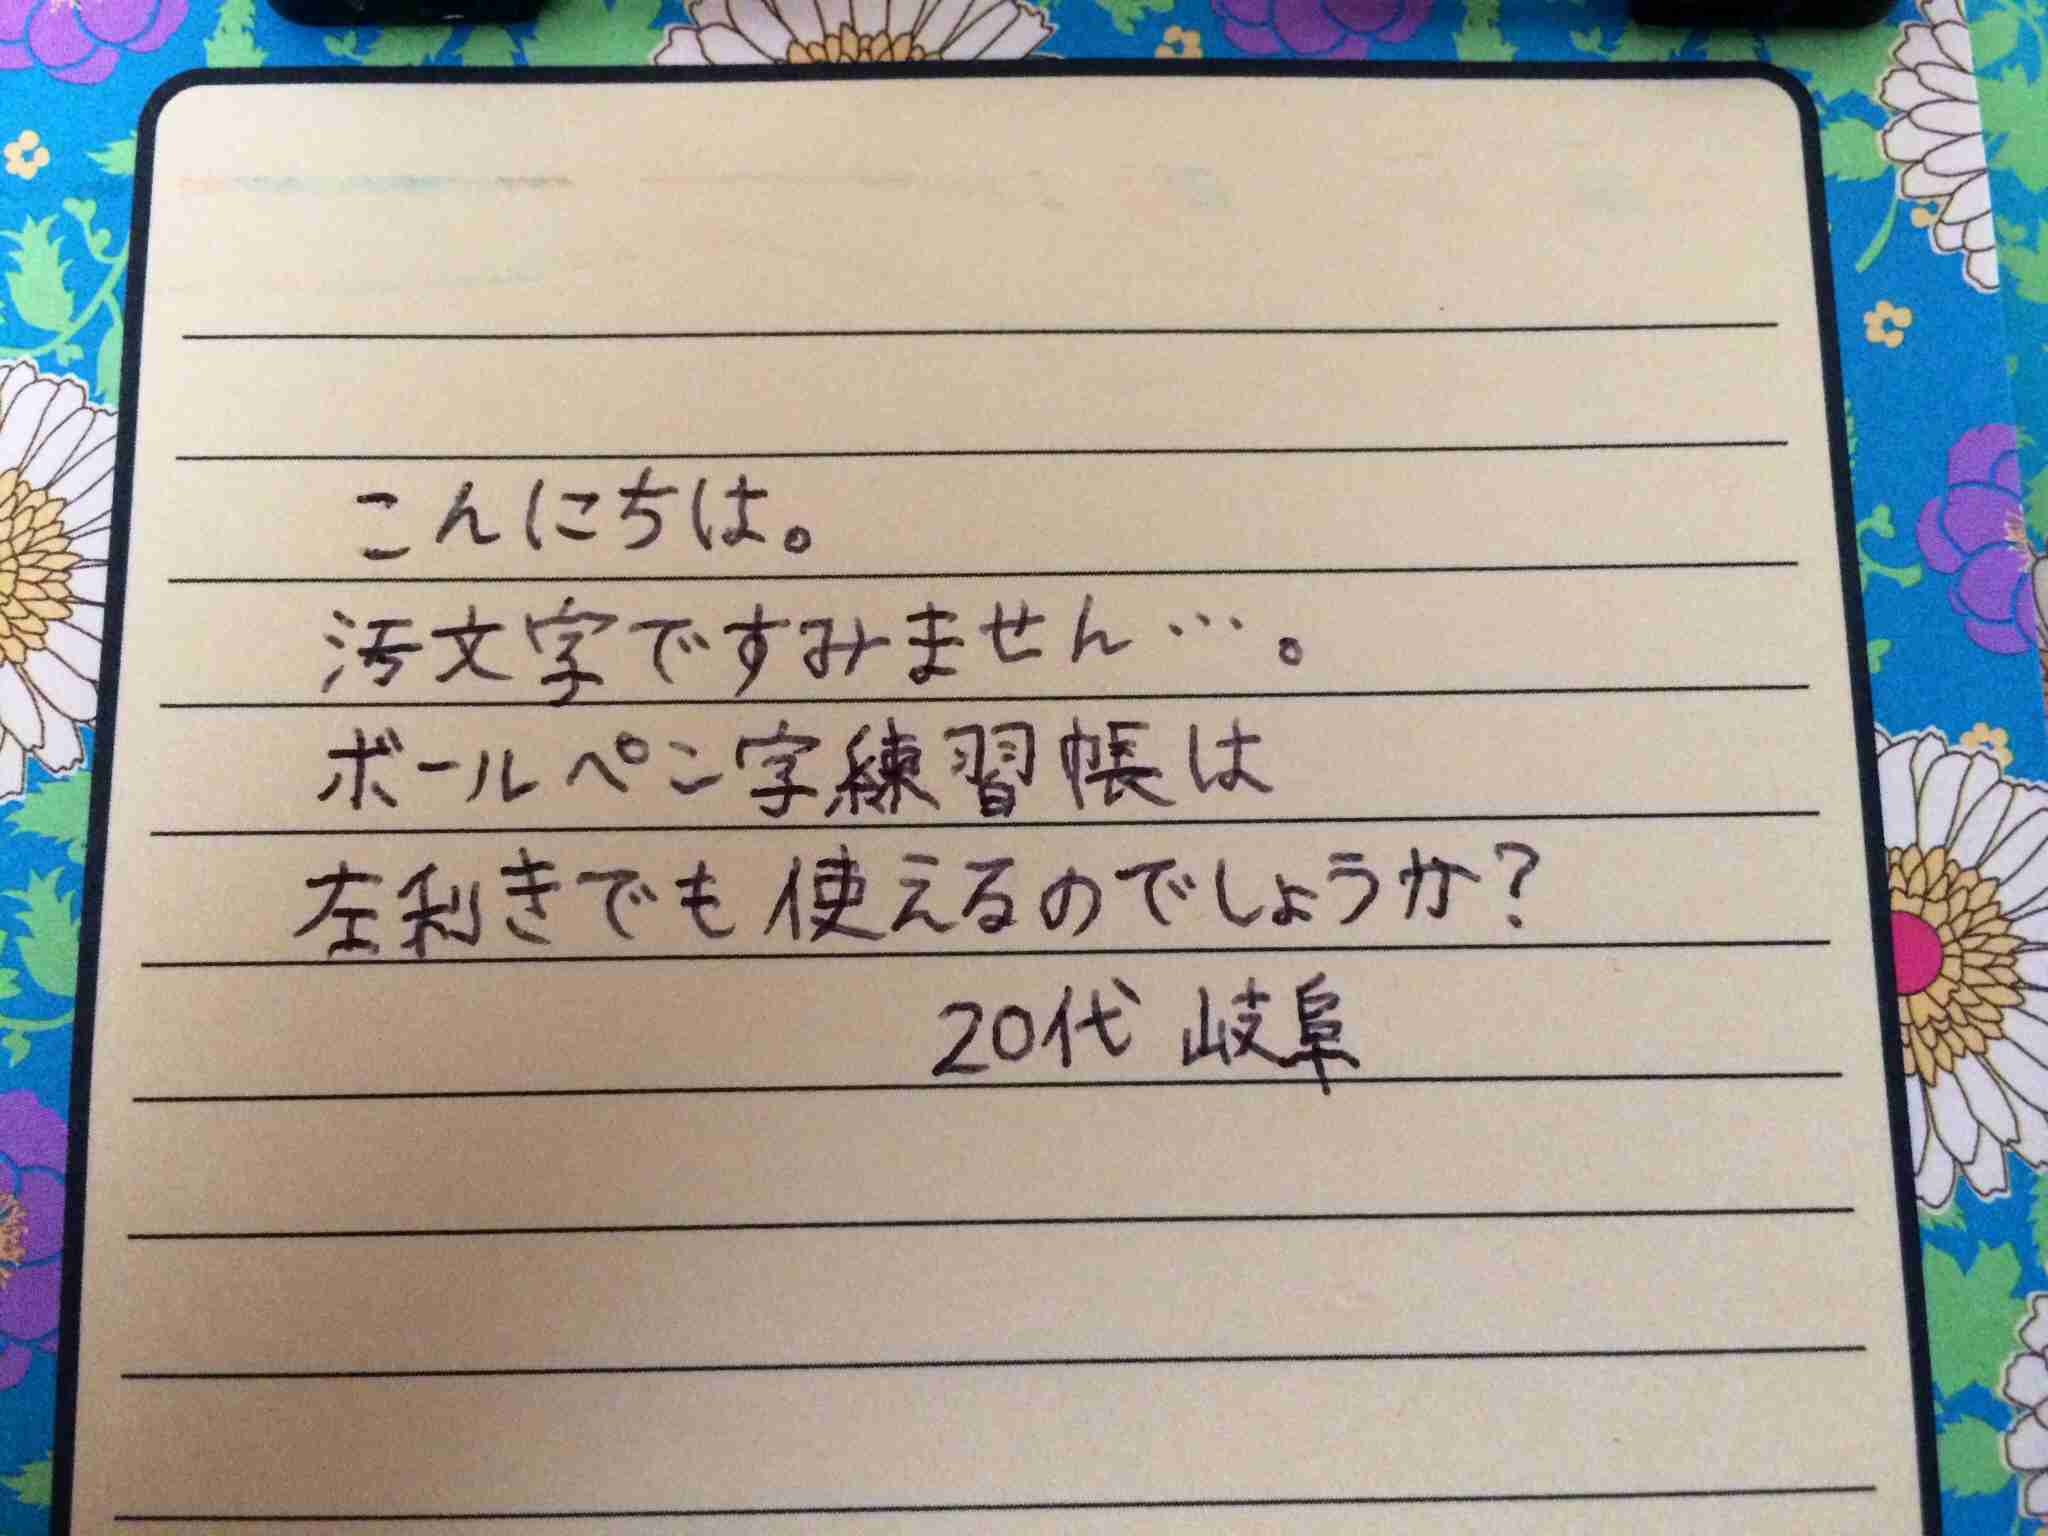 こんにちは。
汚文字ですみません…。
ボールペン字練習帳は
左利きでも使えるのでしょうか？
20代 岐阜